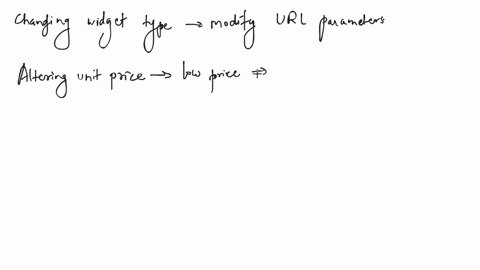 Changing widget type → modify URL parameters
Altering unit price → low price ⇒